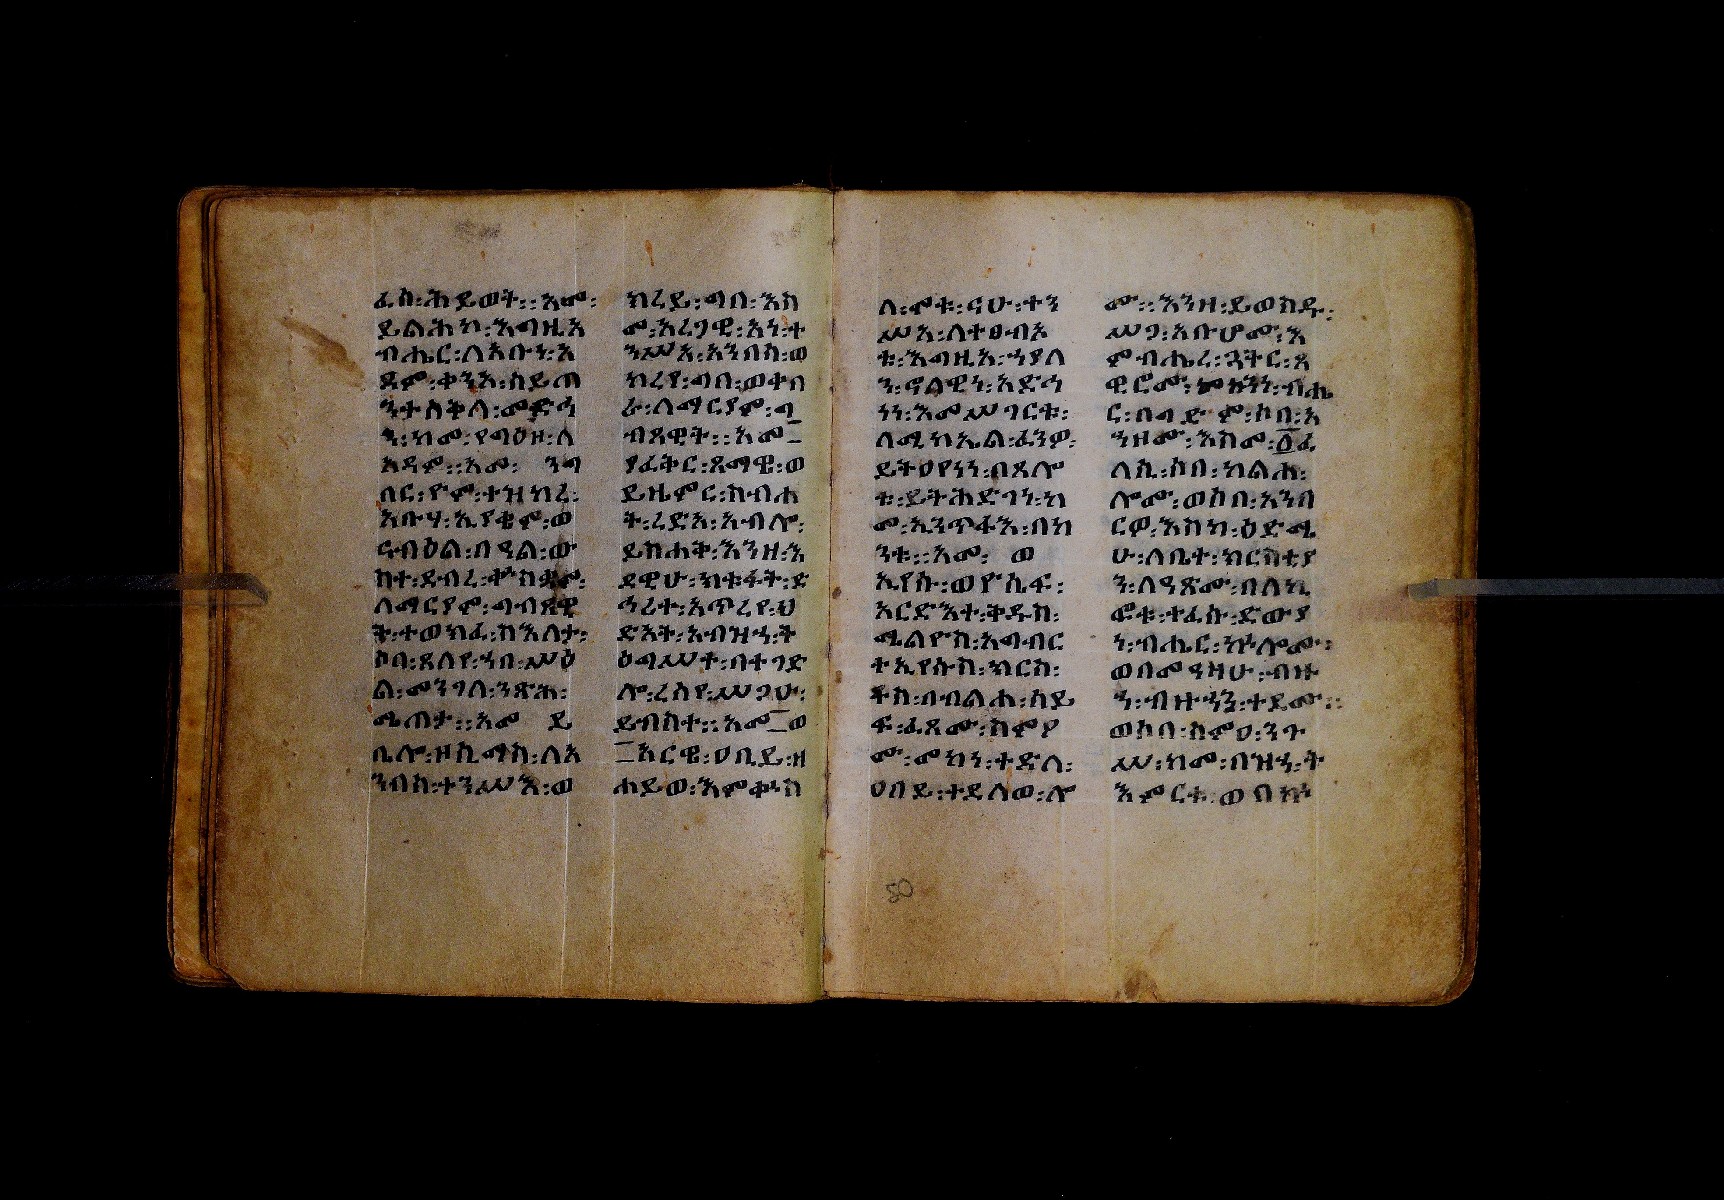 ፈስ፡ሕይወት፡፡እመ፡
ይልሕኮ፡እግዚአ
ብሔር፡ለአቡነ፡አ
ዳም፡ቀንአ፡ሰይጣ
ንተ፡ስቅለ፡መድኅ
ን፡ከመ፡የግዕዘ፡ለ
አዳም፡፡አመ፡ ንግ
በር፡ዮም፡ተዝካረ፡
አቡሃ፡ኢየቄም፡ወ
ናብዕል፡በዓል፡ው
ስተ፡ደብረ፡ቍስቋም፡
ለማርያም፡ግብጻዊ
ት፡ተወክፈ፡ስእለታ፡
ኮባ፡ጸለየ፡ኀበ፡ሥዕ
ል፡መንገለ፡ንጽሕ፡
ሜጠታ፡፡አመ ይ
ቤሎ፡ዞሲማስ፡ለአ
ንብስ፡ተንሥእ፡ወ
ክረይ፡ግበ፡እስ
መ፡አረጋዊ፡አነ፡ተ
ንሥአ፡አንበሳ፡ወ
ከረየ፡ግበ፡ወቀበ
ራ፡ለማርያም፡ግ
ብጻዊት፡፡አመ
ያፈቅር፡ጸማዊ፡ወ
ይዜምር፡ስብሐ
ት፡ረድአ፡አብሎ፡
ይስሐቅ፡እንዘ፡ነ
ደዊሁ፡ክቱፋት፡ድ
ኅረተ፡አጥረየ፡ህ
ድአት፡አብዝኃ፡ት
ዕግሥተ፡በተገድ
ሎ፡ረሰየ፡ሥጋሁ፡
ይብስተ፡፡አመ ወ
አርዌ፡ዐቢይ፡ዘ
ሐይወ፡እምቍስ
ለ፡ሞቱ፡ናሁ፡ተን
ሥአ፡ለተፀብአ
ቱ፡እግዚአ፡ኀያለ
ን፡ኖልዊነ፡አድኅ
ነነ፡እመሥገርቱ፡
ለሚካኤል፡ፈንዎ፡
ይትዐየነነ፡በጸሎ
ቱ፡ይትሕድገነ፡ከ
መ፡ኢንጥፋእ፡በከ
ንቱ፡፡አመ፡ ወ
ኢየሱ፡ወዮሴፍ፡
አርድእተ፡ቅዱስ፡
ሚልዮስ፡አግብር
ተ፡ኢየሱስ፡ክርስ፡
ቶስ፡በብልሐ፡ሰይ
ፍ፡ፈጸሙ፡ስምዖ
ሙ፡መካነ፡ተድላ፡
ዐበይ፡ተደለወ፡ሎ
ሙ፡፡እንዘ፡ይወስዱ፡
ሥጋ፡አቡሆሙ፡እ
ምብሔረ፡ጓትር፡ጸ
ዊሮሙ፡መኳንነ፡ብሔ
ር፡በጋድ ም፡ሶበ፡አ
ንዘሙ፡እስመ፡፬ፈ
ለሲ፡ሶበ፡ከልሐ፡
ሎሙ፡ወሶበ፡አንበ
ርዎ፡እስከ፡ዕድሜ
ሁ፡ለቤተ፡ክርስቲያ
ን፡ለዓጽሙ፡በለኪ
ፎቱ፡ተፈሱ፡ድውያ
ነ፡ብሔር፡ኵሎሙ፡
ወበመዓዛሁ፡ብዙ
ን፡ብዙኃን፡ተደሙ፡፡
ወሶበ፡ስምዐ፡ንጉ
ሥ፡ከመ፡በዝኃ፡ት
እምርቱ፡ወበኵ
80